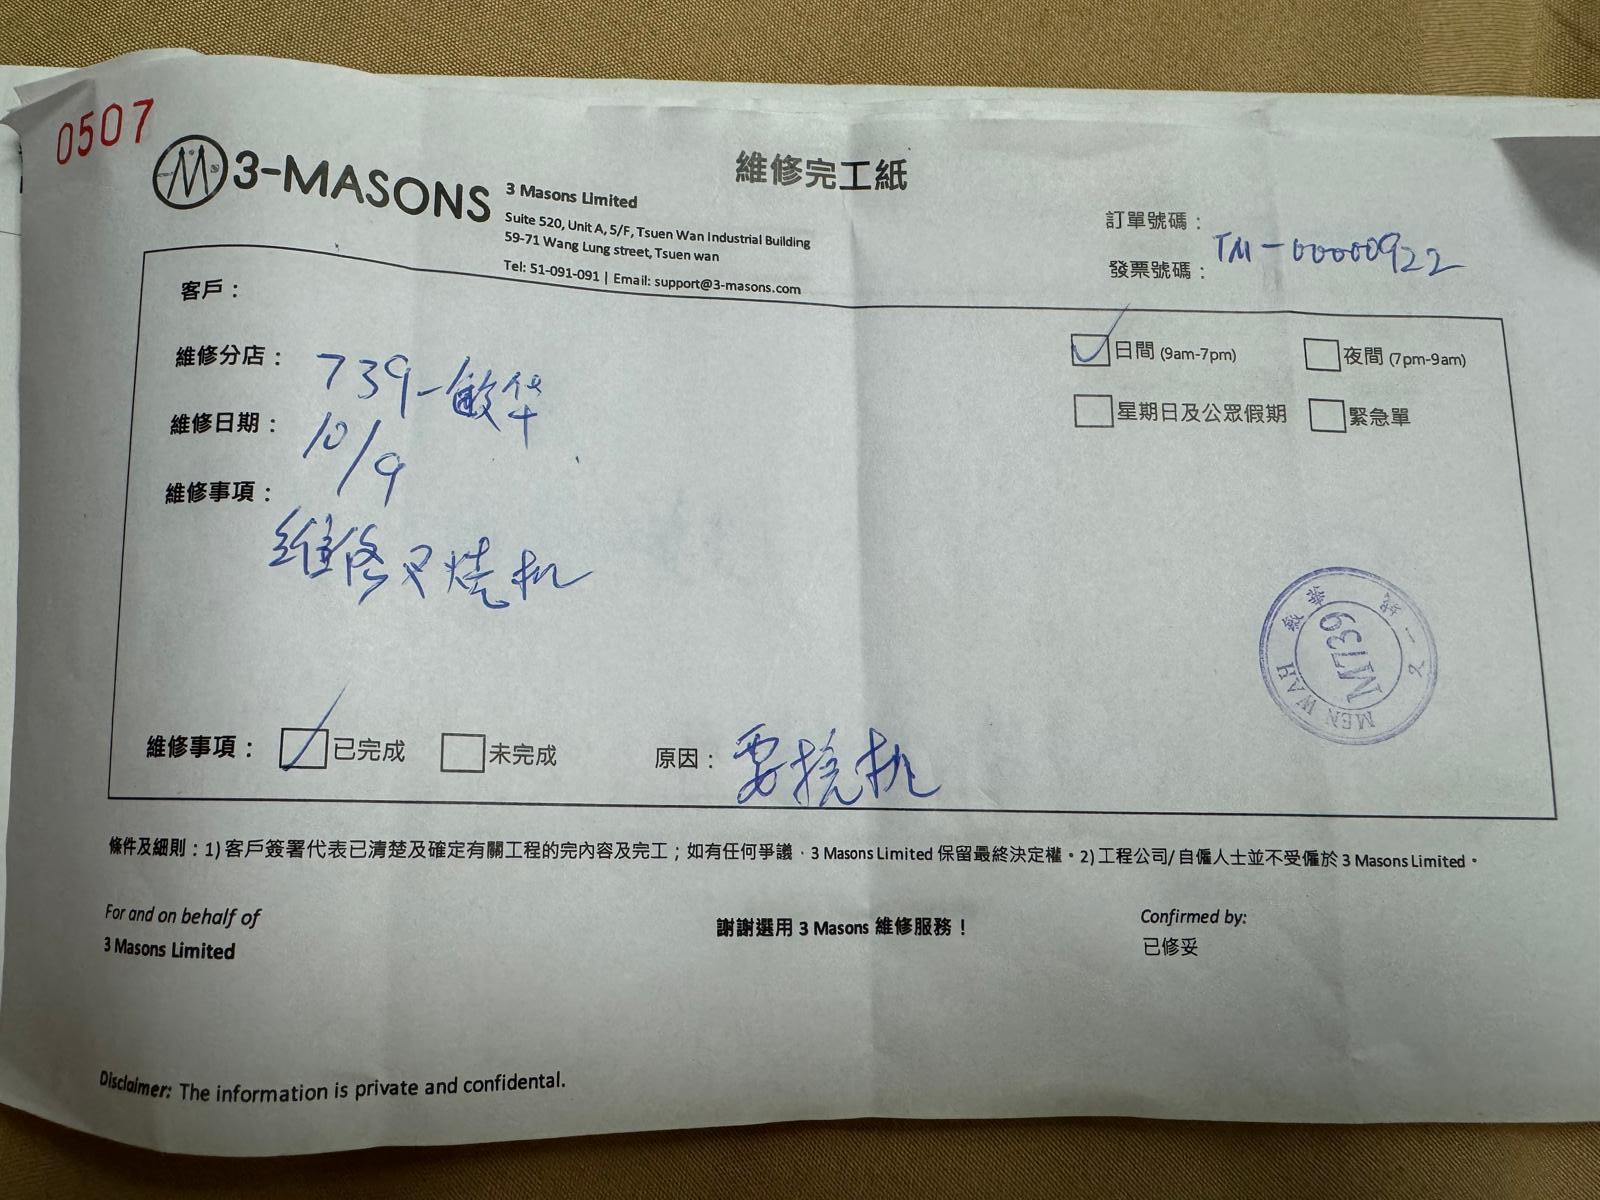 0507
3-MASONS
3 Masons Limited
Suite 520, Unit A, 5/F, Tsuen Wan Industrial Building
59-71 Wang Lung street, Tsuen wan
Tel: 51-091-091 | Email: support@3-masons.com
維修完工紙
訂單號碼：
發票號碼： TM-00000922
客戶：
維修分店： 739-敏华
維修日期： 10/9
維修事項：
維修叉燒机
日間 (9am-7pm)
夜間 (7pm-9am)
星期日及公眾假期
緊急單
敏華
MEN WAH
M739
維修事項： 已完成 未完成 原因： 要換机
條件及細則：1) 客戶簽署代表已清楚及確定有關工程的完內容及完工；如有任何爭議，3 Masons Limited 保留最終決定權。2) 工程公司/ 自僱人士並不受僱於 3 Masons Limited。
For and on behalf of
3 Masons Limited
謝謝選用 3 Masons 維修服務！
Confirmed by:
已修妥
Disclaimer: The information is private and confidental.